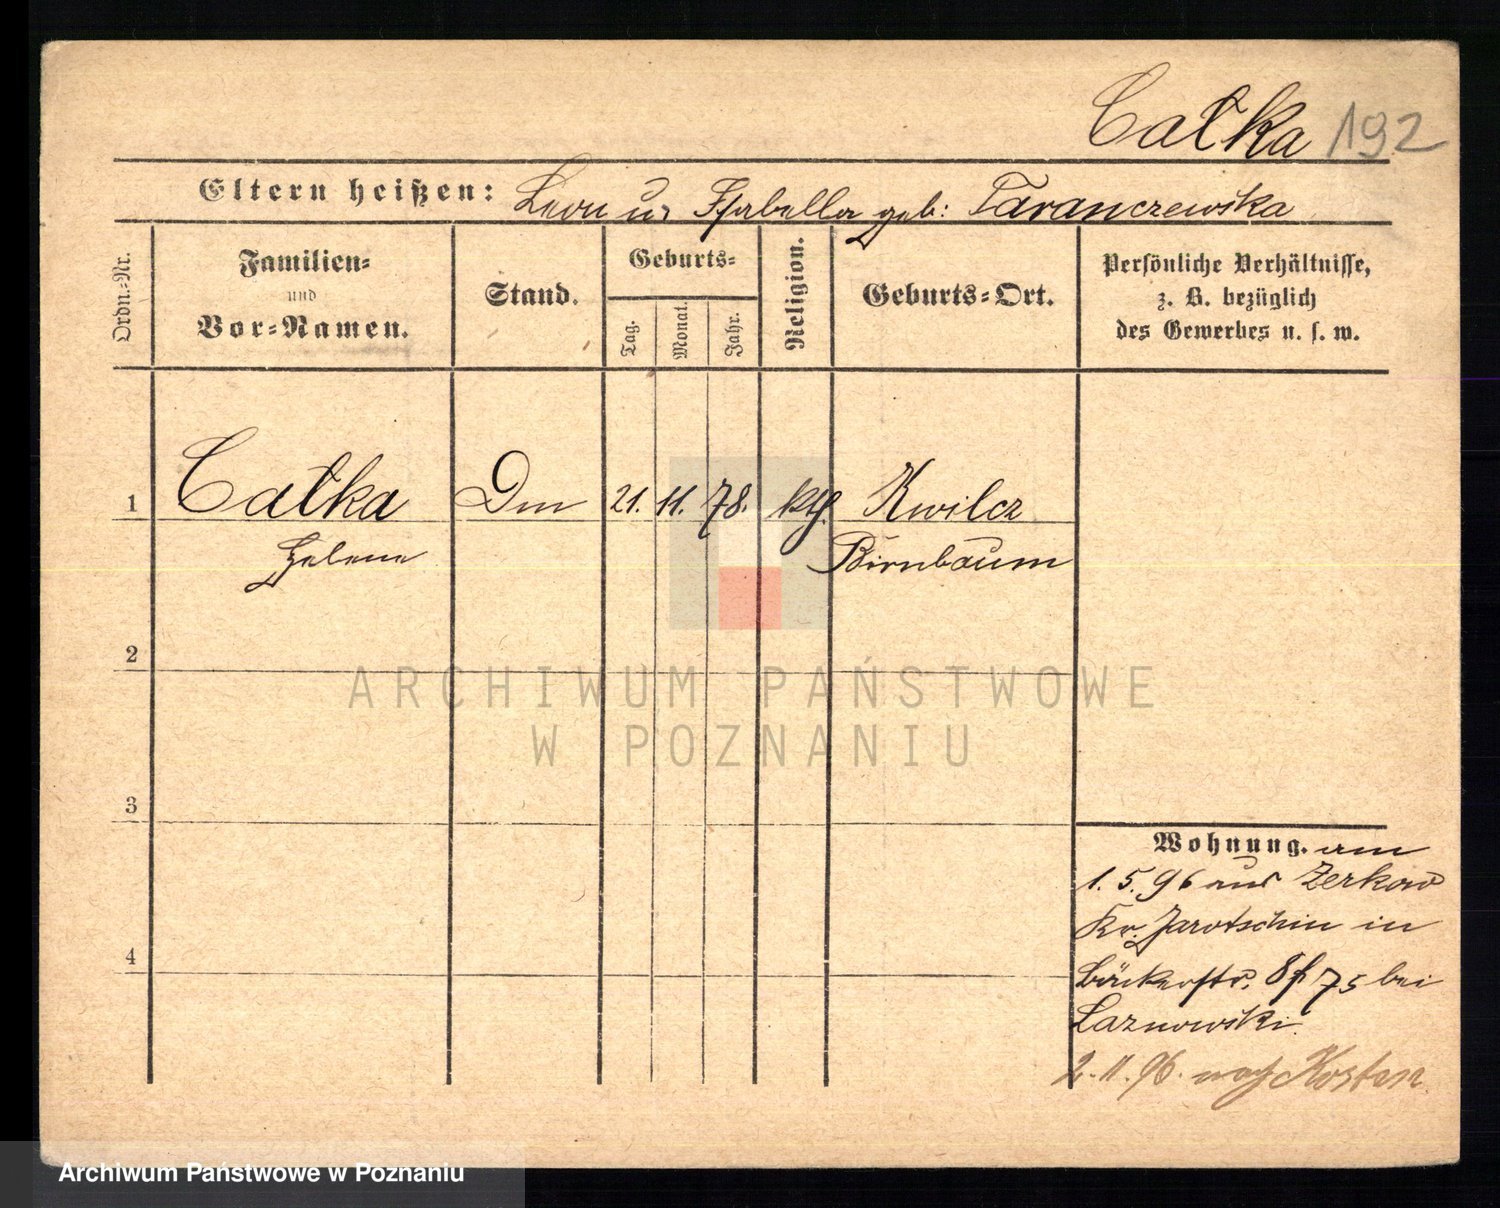 Całka 192
Eltern heißen: Leon u. Isabella geb: Taranczewska
Ordn.-Nr.
Familien-
und
Vor-Namen.
Stand.
Geburts-
Tag.
Monat.
Jahr.
Religion.
Geburts-Ort.
Persönliche Verhältnisse,
z. B. bezüglich
des Gewerbes u. s. w.
1 Całka Dm 21. 11. 78. kth. Kwilcz
Helene Birnbaum
2
3
4
Wohnung. am
1. 5. 96 aus Zerkow
Kr. Jarotschin in
Bäckerstr. 8 75 bei
Laznowski.
2. 11. 96. nach Kosten
ARCHIWUM PAŃSTWOWE
W POZNANIU
Archiwum Państwowe w Poznaniu